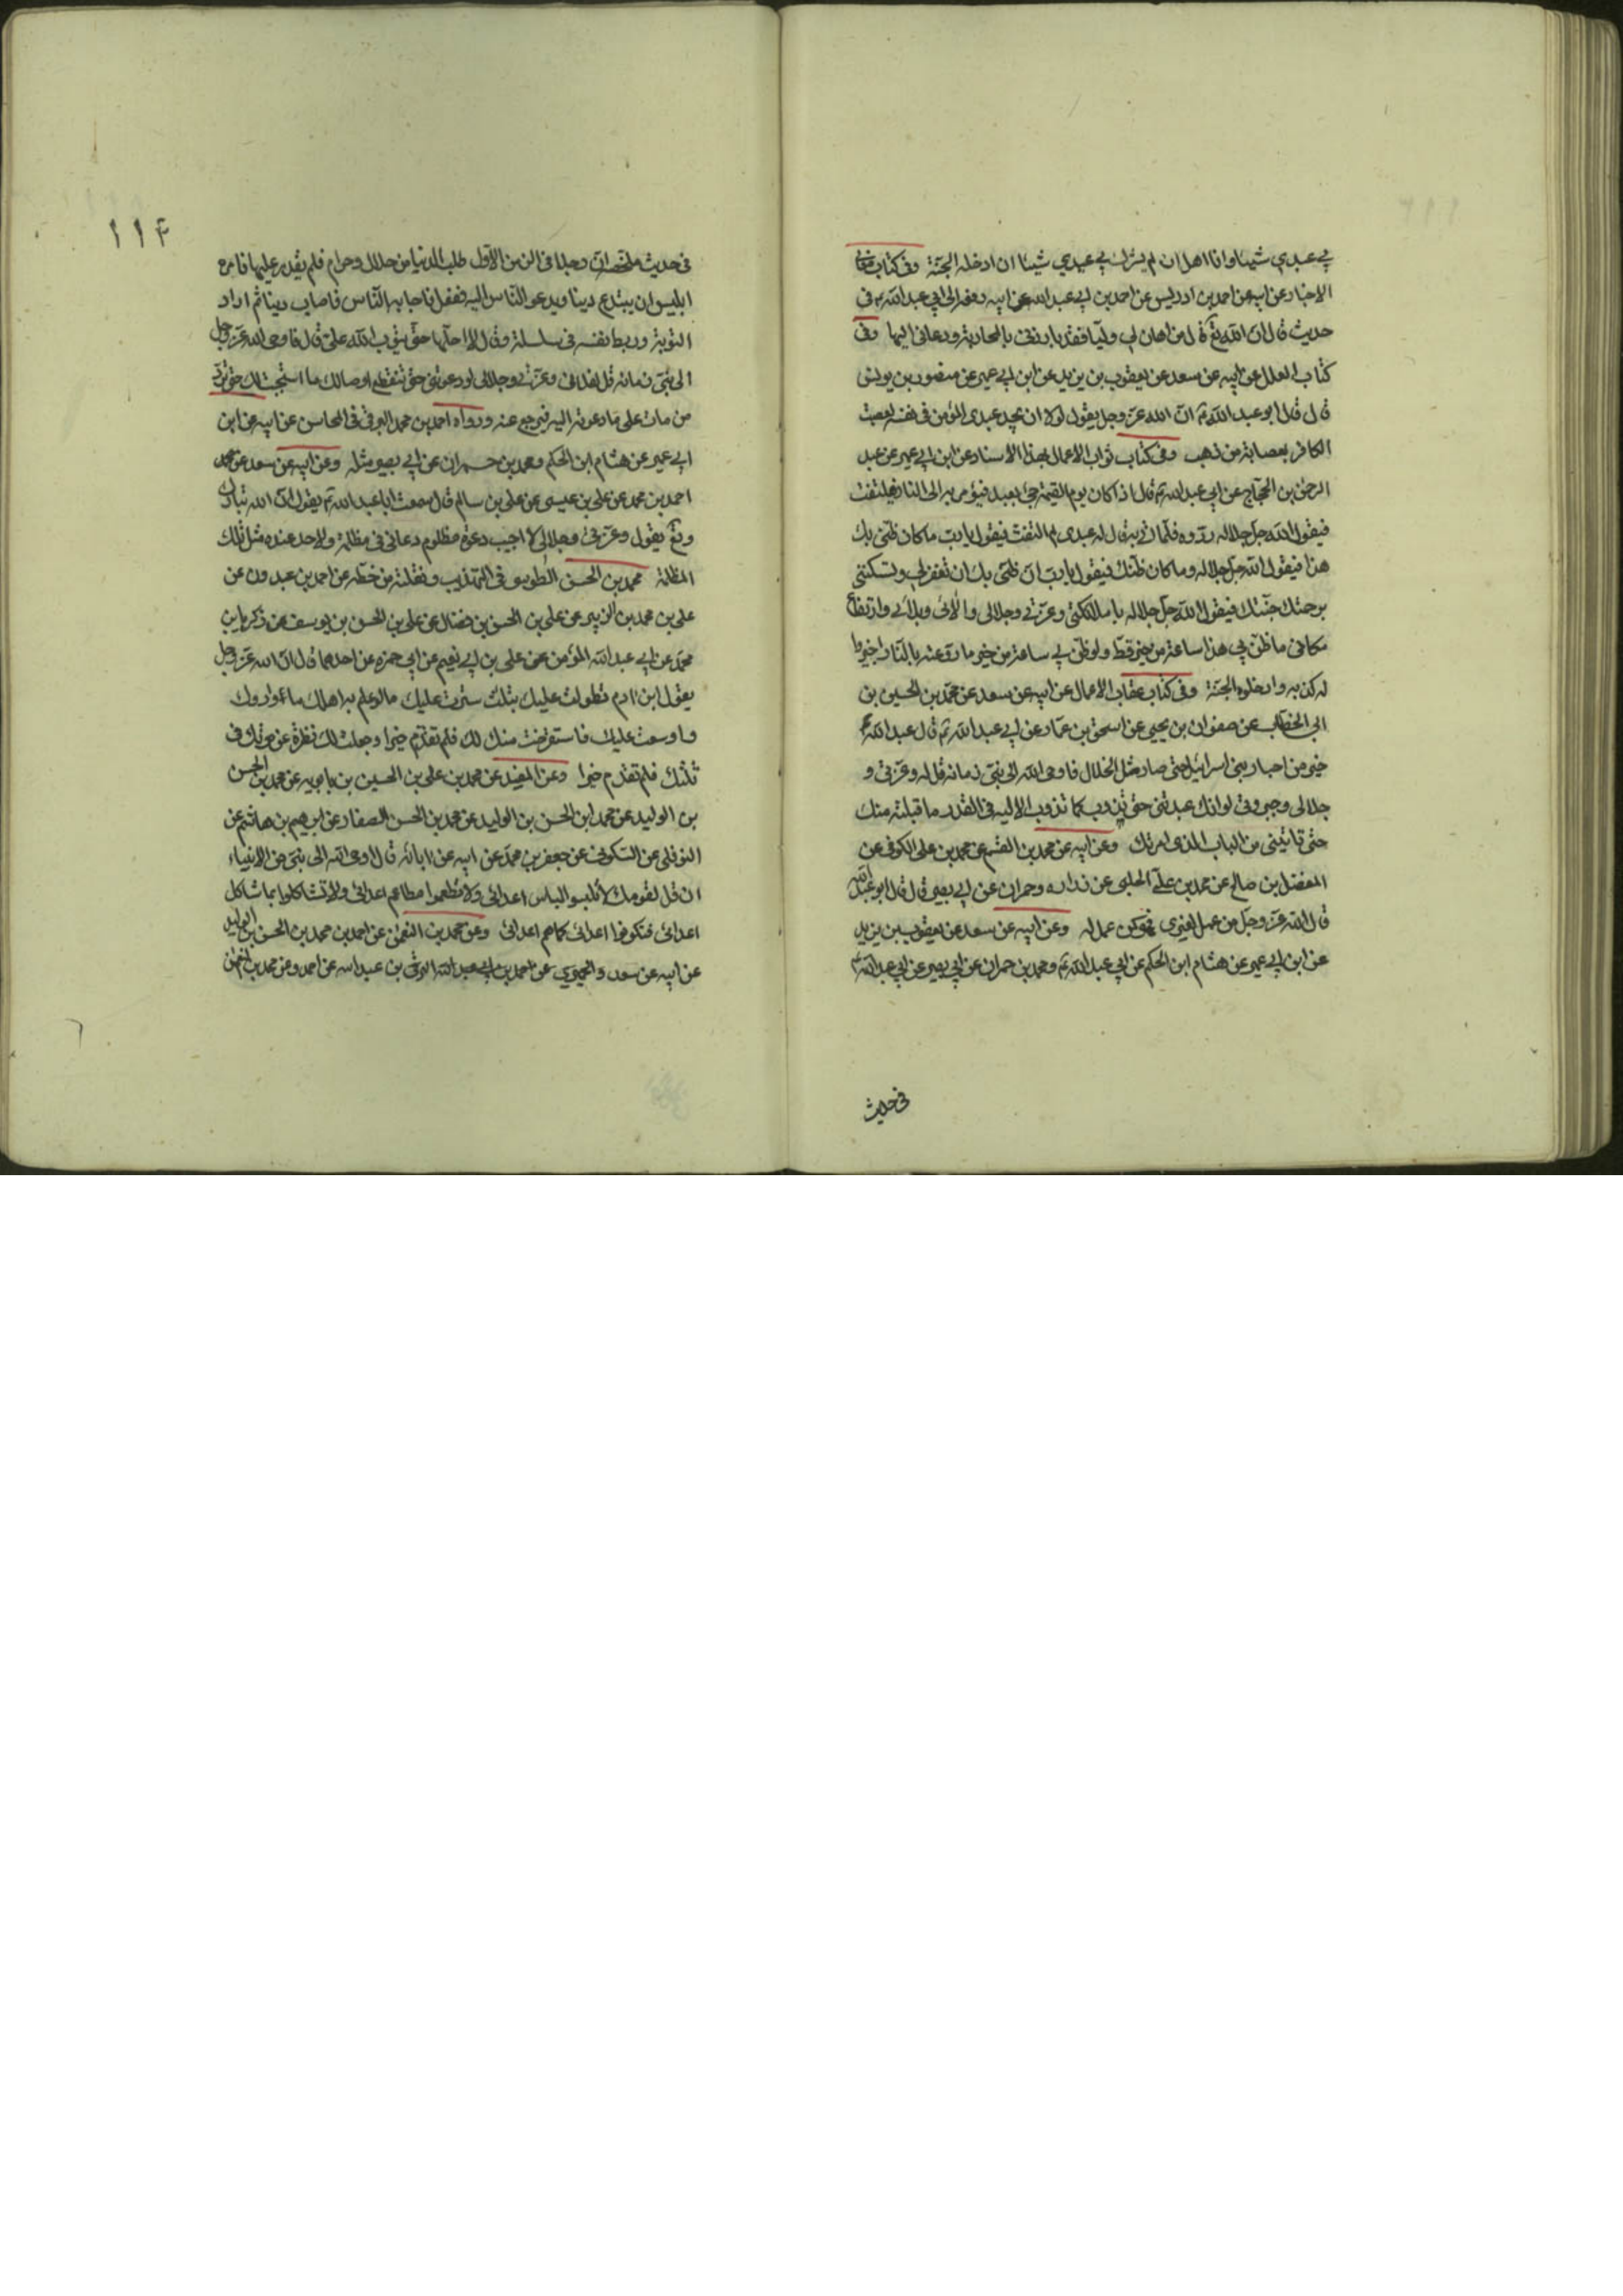 بي عبدي شيئا وانا اهل ان لم يشرك بي عبدي شيئا ان ادخله الجنة وفي كتاب معاني
الاخبار عن ابيه عن احمد بن ادريس عن احمد بن ابي عبد الله عن ابيه رفعه الى ابي عبد الله ع في
حديث قال ان الله تع قال من اهان لي وليا فقد بارزني بالمحاربة ودعاني اليها وفي
كتاب العلل عن ابيه عن سعد عن يعقوب بن يزيد عن ابن ابي عمير عن منصور بن يونس
قال قال ابو عبد الله ع ان الله عز وجل يقول لولا ان يجد عبدي المؤمن في نفسه لعصبت
الكافر بعصابة من ذهب وفي كتاب ثواب الاعمال بهذا الاسناد عن ابن ابي عمير عن عبد
الرحمن بن الحجاج عن ابي عبد الله ع قال اذا كان يوم القيمة جئ بعبد فيؤمر به الى النار فيلتفت
فيقول الله جل جلاله ردوه فلما اتي به قال له عبدي لم التفت فيقول يا رب ما كان ظني بك
هذا فيقول الله جل جلاله وما كان ظنك فيقول يا رب ان ظني بك ان تغفر لي وتسكنني
برحمتك جنتك فيقول الله جل جلاله يا ملائكتي وعزتي وجلالي والائي وبلائي وارتفاع
مكاني ما ظن بي هذا ساعة من خير قط ولو ظن بي ساعة من خير ما روعته بالنار اجيزوا
له كذبه وادخلوه الجنة وفي كتاب عقاب الاعمال عن ابيه عن سعد عن محمد بن الحسين بن
ابي الخطاب عن صفوان بن يحيى عن اسحق بن عمار عن ابي عبد الله ع قال عبد الله
حبر من احبار بني اسرائيل حتى صار مثل الخلال فاوحى الله الى نبي زمانه قل له وعزتي و
جلالي وجبروتي لو انك عبدتني حتى تذوب كما تذوب الالية في القدر ما قبلته منك
حتى تاتيني من الباب الذي امرتك وعن ابيه عن محمد بن القسم عن محمد بن علي الكوفي عن
المفضل بن صالح عن محمد بن علي الحلبي عن زرارة وحمران عن ابي بصير قال قال ابو عبد الله
قال الله عز وجل من عمل لغيري فهو كمن عمل له وعن ابيه عن سعد عن يعقوب بن يزيد
عن ابن ابي عمير عن هشام ابن الحكم عن ابي عبد الله ع ومحمد بن حمران عن ابي بصير عن ابي عبد الله ع
في حديث
١١٤
في حديث ان رجلا في الزمن الاول طلب الدنيا من حلال وحرام فلم يقدر عليها فامره
ابليس ان يبتدع دينا ويدعو الناس اليه ففعل فاجابه الناس فاصاب دينا ثم اراد
التوبة وربط نفسه في سلسلة وقال لا احلها حتى يتوب الله علي قال فاوحى الله عز وجل
الى نبي زمانه قل لفلان وعزتي وجلالي لو دعوتني حتى تنقطع اوصالك ما استجبت لك حتى ترد
من مات على ما دعوته اليه فيرجع عنه ورواه احمد بن محمد البرقي في المحاسن عن ابيه عن ابن
ابي عمير عن هشام ابن الحكم ومحمد بن حمران عن ابي بصير مثله وعن ابيه عن سعد عن محمد
احمد بن محمد عن علي بن عيسى عن علي بن سالم قال سمعت ابا عبد الله ع يقول ان الله تبارك
وتع يقول وعزتي وجلالي لا اجيب دعوة مظلوم دعاني في مظلمة ولاحد عنده مثل تلك
المظلمة محمد بن الحسن الطوسي في التهذيب ونقلته من خطه عن احمد بن عبدون عن
علي بن محمد بن الزبير عن علي بن الحسن بن فضال عن علي بن الحسن بن يوسف عن زكريا بن
محمد عن ابي عبد الله المؤمن عن علي بن ابي نعيم عن ابي حمزة عن احدهما قال ان الله عز وجل
يقول ابن ادم تطولت عليك بثلث سترت عليك ما لو علم به اهلك ما واروك
واوسعت عليك فاستقرضت منك لك فلم تقدم خيرا وجعلت لك نظرة عن موتك في
ثلثك فلم تقدم خيرا وعن المفيد عن محمد بن علي بن الحسين بن بابويه عن محمد بن الحسن
بن الوليد عن محمد ابن الحسن بن الوليد عن محمد بن الحسن الصفار عن ابرهيم بن هاشم عن
النوفلي عن السكوني عن جعفر بن محمد عن ابيه عن ابائه قال اوحى الله الى نبي من الانبياء
ان قل لقومك لا تلبسوا لباس اعدائي ولا تطعموا مطاعم اعدائي ولا تشاكلوا بما شاكل
اعدائي فتكونوا اعدائي كما هم اعدائي وعن محمد بن النعمن عن احمد بن محمد بن الحسن بن الوليد
عن ابيه عن سعد والحميري عن احمد بن ابي عبد الله البرقي بن عبد الله عن احمد وعن محمد بن النعمن